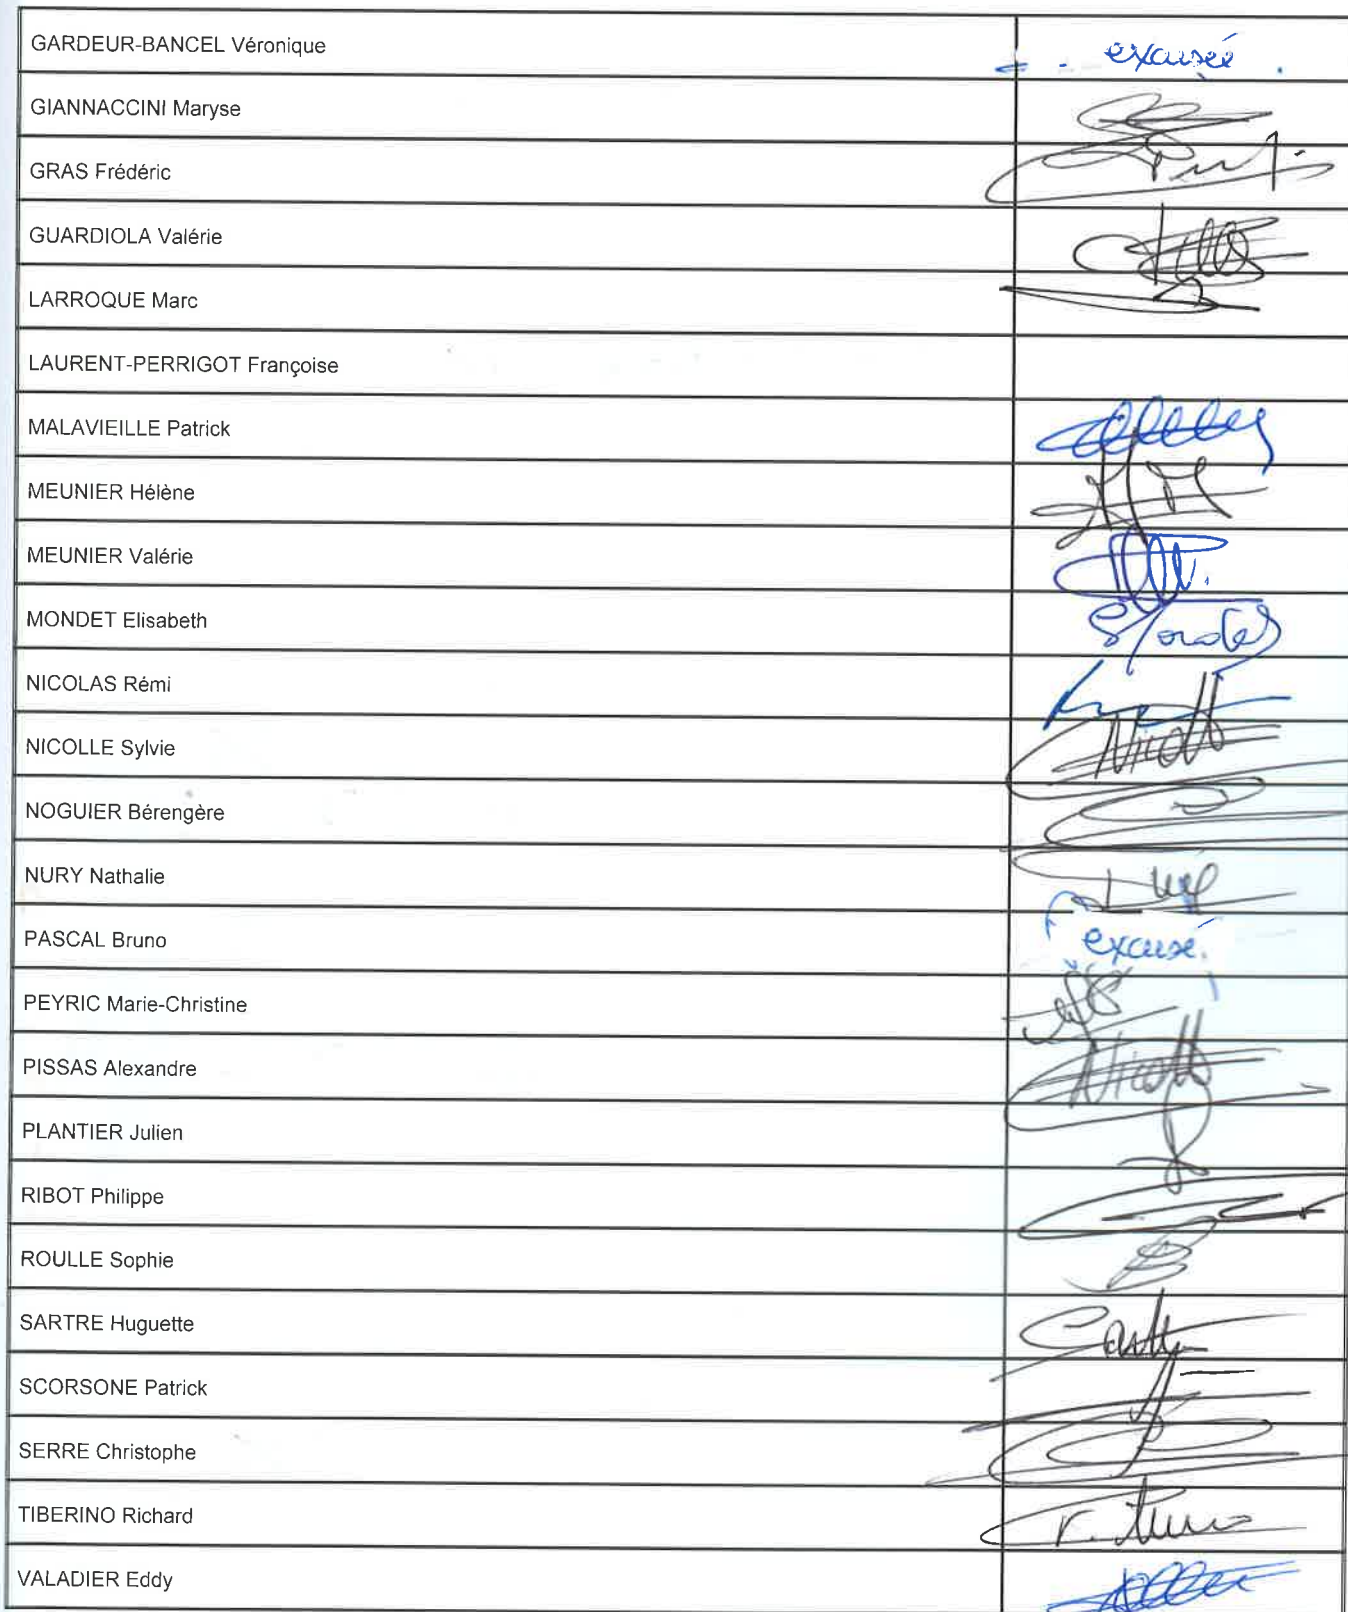 GARDEUR-BANCEL Véronique excusée
GIANNACCINI Maryse
GRAS Frédéric
GUARDIOLA Valérie
LARROQUE Marc
LAURENT-PERRIGOT Françoise
MALAVIEILLE Patrick
MEUNIER Hélène
MEUNIER Valérie
MONDET Elisabeth
NICOLAS Rémi
NICOLLE Sylvie
NOGUIER Bérengère
NURY Nathalie
PASCAL Bruno excusé.
PEYRIC Marie-Christine
PISSAS Alexandre
PLANTIER Julien
RIBOT Philippe
ROULLE Sophie
SARTRE Huguette
SCORSONE Patrick
SERRE Christophe
TIBERINO Richard
VALADIER Eddy